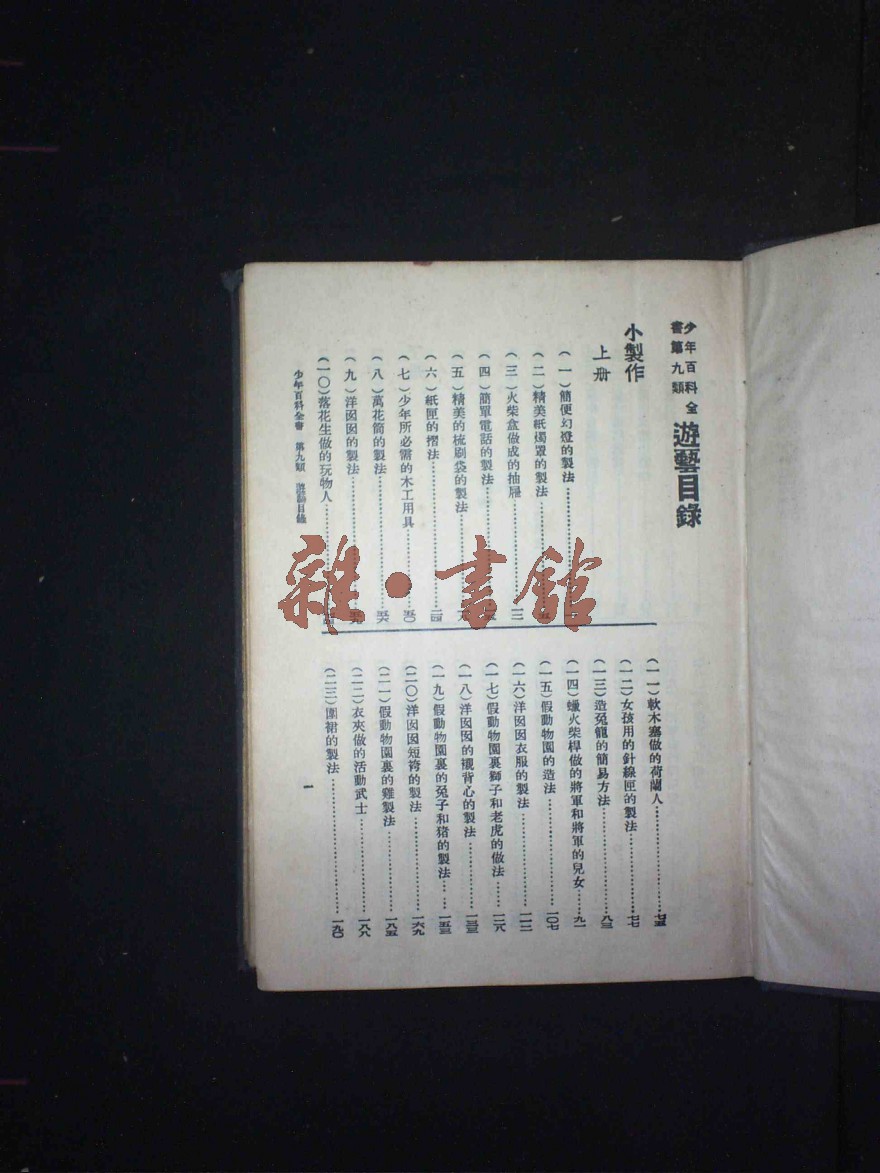 少年百科全
書第九類
遊藝目錄
小製作
上册
（一）簡便幻燈的製法
（二）精美紙燭罩的製法
（三）火柴盒做成的抽屜……一二
（四）簡單電話的製法
（五）精美的梳刷袋的製法……一九
（六）紙匣的摺法……二四
（七）少年所必需的木工用具……五〇
（八）萬花筒的製法……五六
（九）洋囡囡的製法……五九
（一〇）落花生做的玩物人
（一一）軟木塞做的荷蘭人……七五
（一二）女孩用的針線匣的製法……七七
（一三）造兔籠的簡易方法……八三
（一四）蠟火柴桿做的將軍和將軍的兒女……九一
（一五）假動物園的造法……一〇七
（一六）洋囡囡衣服的製法……一一二
（一七）假動物園裏獅子和老虎的做法……一二八
（一八）洋囡囡的襯背心的製法……一三三
（一九）假動物園裏的兔子和猪的製法……一五三
（二〇）洋囡囡短袴的製法……一六九
（二一）假動物園裏的雞製法……一八五
（二二）衣夾做的活動武士……一八八
（二三）圍裙的製法……一九〇
少年百科全書　第九類　遊藝目錄
一
雜·書館